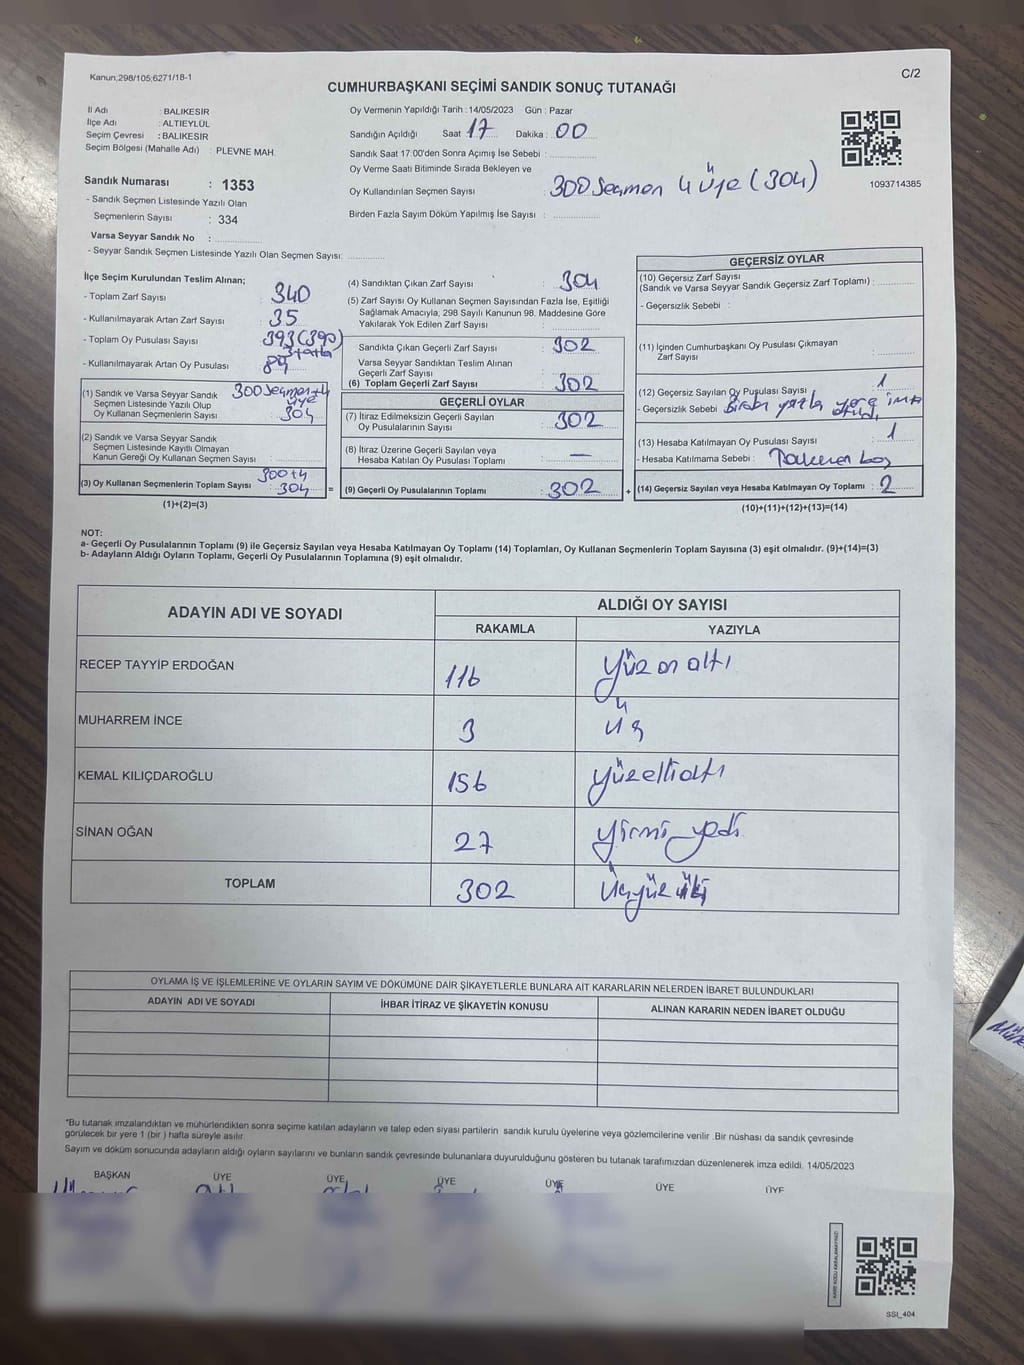 Kanun;298/105;6271/18-1
C/2
CUMHURBAŞKANI SEÇİMİ SANDIK SONUÇ TUTANAĞI
İl Adı : BALIKESİR
İlçe Adı : ALTIEYLÜL
Seçim Çevresi : BALIKESİR
Seçim Bölgesi (Mahalle Adı) : PLEVNE MAH.
Sandık Numarası : 1353
- Sandık Seçmen Listesinde Yazılı Olan
Seçmenlerin Sayısı : 334
Varsa Seyyar Sandık No :
- Seyyar Sandık Seçmen Listesinde Yazılı Olan Seçmen Sayısı:
Oy Vermenin Yapıldığı Tarih : 14/05/2023 Gün : Pazar
Sandığın Açıldığı Saat 17 Dakika : 00
Sandık Saat 17:00'den Sonra Açımış İse Sebebi :
Oy Verme Saati Bitiminde Sırada Bekleyen ve
Oy Kullandırılan Seçmen Sayısı : 300 Seçmen 4 Üye (304)
Birden Fazla Sayım Döküm Yapılmış İse Sayısı :
1093714385
İlçe Seçim Kurulundan Teslim Alınan;
- Toplam Zarf Sayısı : 340
- Kullanılmayarak Artan Zarf Sayısı : 35
- Toplam Oy Pusulası Sayısı : 393 (390)
- Kullanılmayarak Artan Oy Pusulası :
(1) Sandık ve Varsa Seyyar Sandık
Seçmen Listesinde Yazılı Olup
Oy Kullanan Seçmenlerin Sayısı : 300 Seçmen+4 üye 304
(2) Sandık ve Varsa Seyyar Sandık
Seçmen Listesinde Kayıtlı Olmayan
Kanun Gereği Oy Kullanan Seçmen Sayısı :
(3) Oy Kullanan Seçmenlerin Toplam Sayısı : 300+4 304
(1)+(2)=(3)
(4) Sandıktan Çıkan Zarf Sayısı : 304
(5) Zarf Sayısı Oy Kullanan Seçmen Sayısından Fazla İse, Eşitliği
Sağlamak Amacıyla, 298 Sayılı Kanunun 98. Maddesine Göre
Yakılarak Yok Edilen Zarf Sayısı :
Sandıkta Çıkan Geçerli Zarf Sayısı : 302
Varsa Seyyar Sandıktan Teslim Alınan
Geçerli Zarf Sayısı :
(6) Toplam Geçerli Zarf Sayısı : 302
GEÇERLİ OYLAR
(7) İtiraz Edilmeksizin Geçerli Sayılan
Oy Pusulalarının Sayısı : 302
(8) İtiraz Üzerine Geçerli Sayılan veya
Hesaba Katılan Oy Pusulası Toplamı : —
= (9) Geçerli Oy Pusulalarının Toplamı : 302
GEÇERSİZ OYLAR
(10) Geçersiz Zarf Sayısı
(Sandık ve Varsa Seyyar Sandık Geçersiz Zarf Toplamı) :
- Geçersizlik Sebebi :
(11) İçinden Cumhurbaşkanı Oy Pusulası Çıkmayan
Zarf Sayısı :
(12) Geçersiz Sayılan Oy Pusulası Sayısı : 1
- Geçersizlik Sebebi : Birden fazla yere
(13) Hesaba Katılmayan Oy Pusulası Sayısı : 1
- Hesaba Katılmama Sebebi : boş
+ (14) Geçersiz Sayılan veya Hesaba Katılmayan Oy Toplamı : 2
(10)+(11)+(12)+(13)=(14)
NOT:
a- Geçerli Oy Pusulalarının Toplamı (9) ile Geçersiz Sayılan veya Hesaba Katılmayan Oy Toplamı (14) Toplamları, Oy Kullanan Seçmenlerin Toplam Sayısına (3) eşit olmalıdır. (9)+(14)=(3)
b- Adayların Aldığı Oyların Toplamı, Geçerli Oy Pusulalarının Toplamına (9) eşit olmalıdır.
ADAYIN ADI VE SOYADI
ALDIĞI OY SAYISI
RAKAMLA YAZIYLA
RECEP TAYYİP ERDOĞAN 116 yüz on altı
MUHARREM İNCE 3 üç
KEMAL KILIÇDAROĞLU 156 yüzellialtı
SİNAN OĞAN 27 yirmi yedi
TOPLAM 302 Üçyüz iki
OYLAMA İŞ VE İŞLEMLERİNE VE OYLARIN SAYIM VE DÖKÜMÜNE DAİR ŞİKAYETLERLE BUNLARA AİT KARARLARIN NELERDEN İBARET BULUNDUKLARI
ADAYIN ADI VE SOYADI İHBAR İTİRAZ VE ŞİKAYETİN KONUSU ALINAN KARARIN NEDEN İBARET OLDUĞU
*Bu tutanak imzalandıktan ve mühürlendikten sonra seçime katılan adayların ve talep eden siyası partilerin sandık kurulu üyelerine veya gözlemcilerine verilir .Bir nüshası da sandık çevresinde
görülecek bir yere 1 (bir ) hafta süreyle asılır.
Sayım ve döküm sonucunda adayların aldığı oyların sayılarını ve bunların sandık çevresinde bulunanlara duyurulduğunu gösteren bu tutanak tarafımızdan düzenlenerek imza edildi. 14/05/2023
BAŞKAN ÜYE ÜYE ÜYE ÜYE ÜYE ÜYE
SSI_404